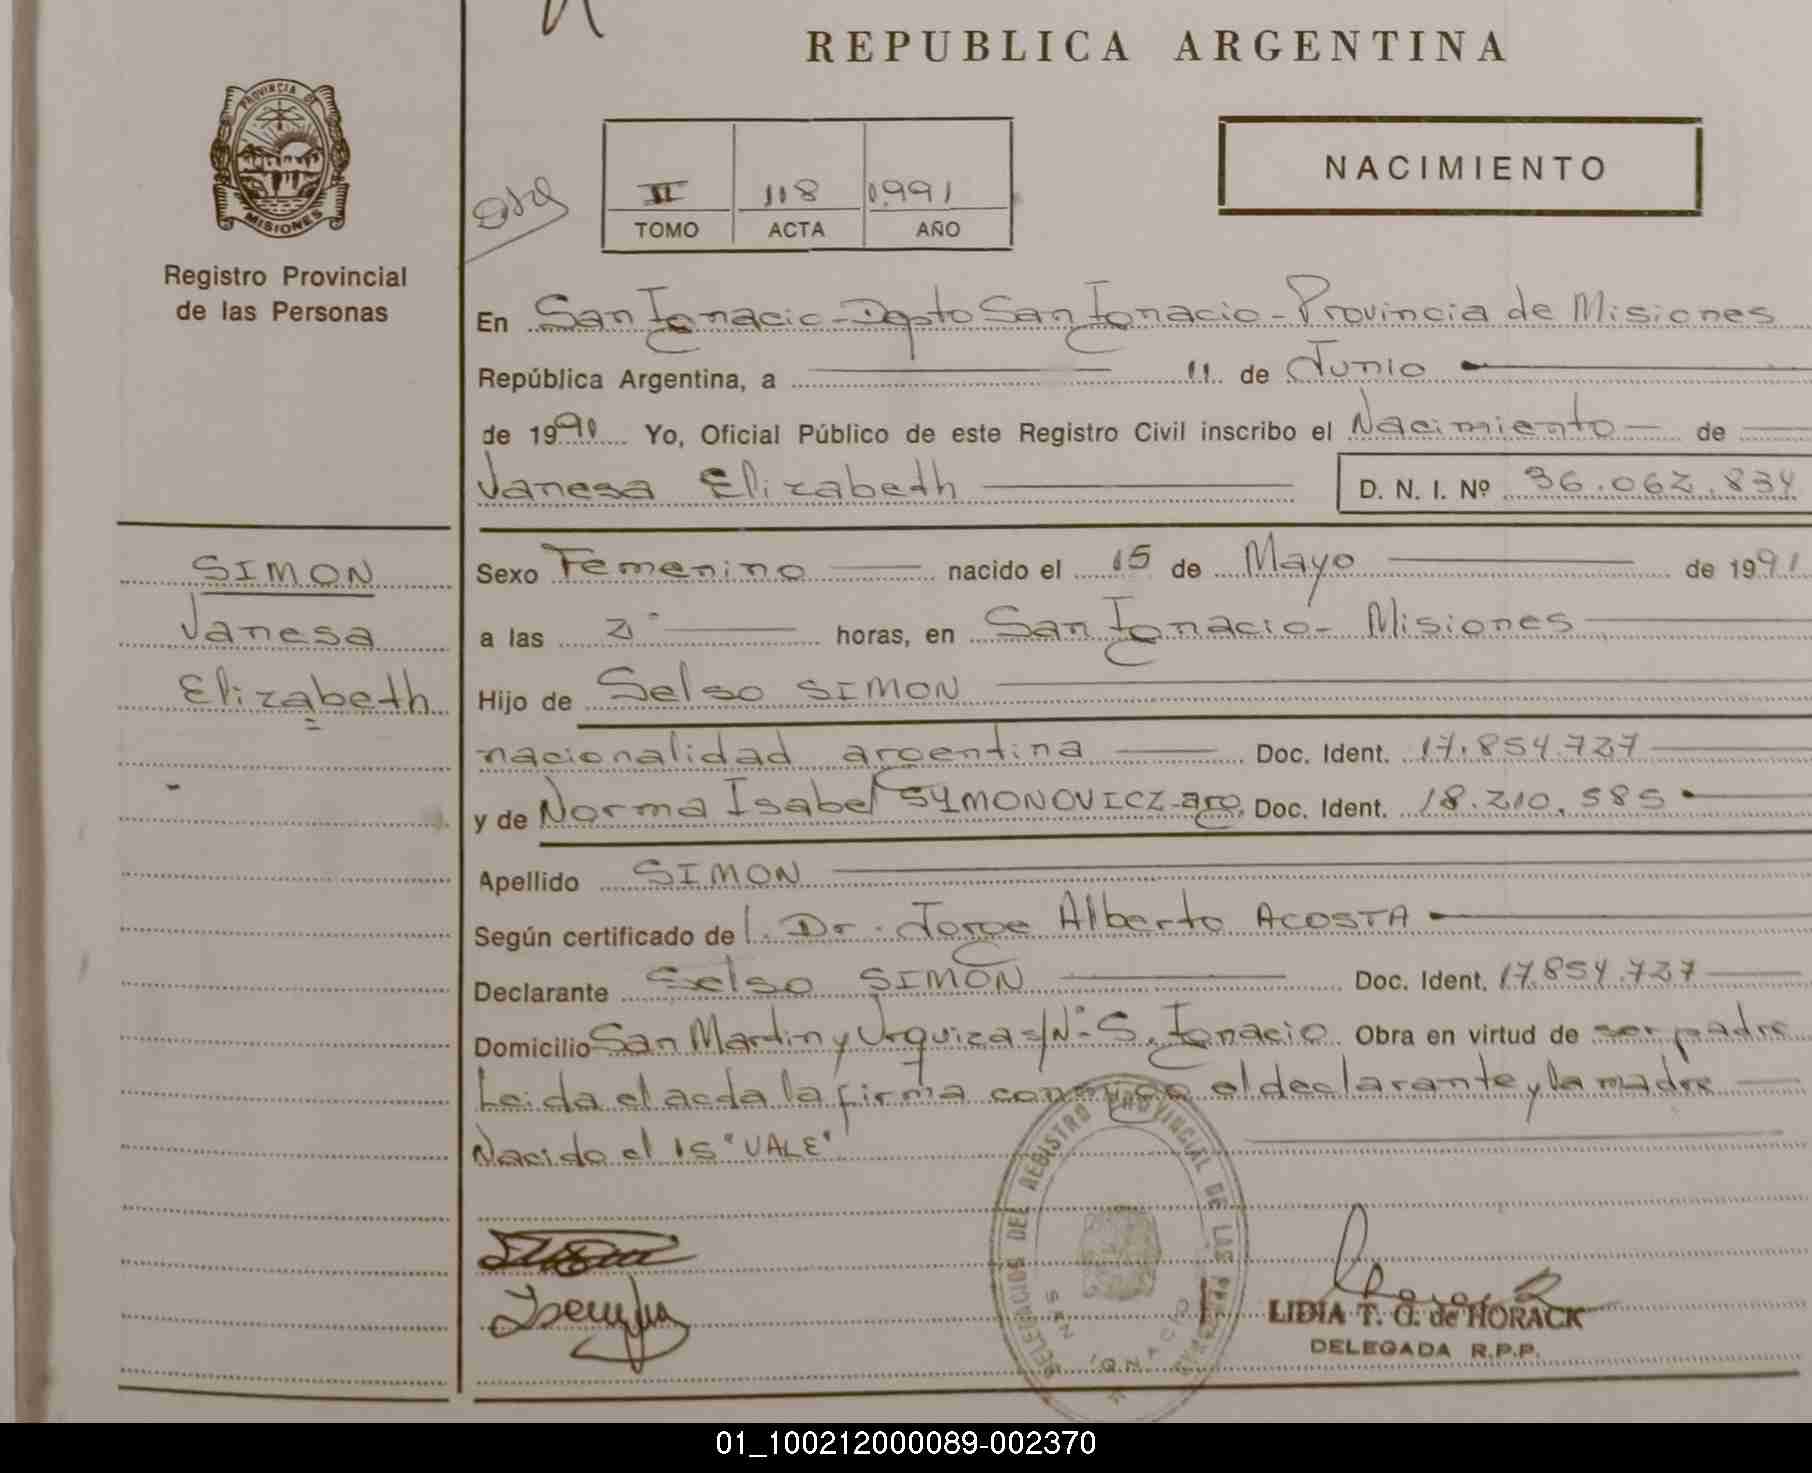 REPUBLICA ARGENTINA
PROVINCIA DE
MISIONES
Registro Provincial
de las Personas
II 118 1.991
TOMO ACTA AÑO
NACIMIENTO
En San Ignacio - Dpto San Ignacio - Provincia de Misiones
República Argentina, a 11 de Junio
de 1991 Yo, Oficial Público de este Registro Civil inscribo el Nacimiento de
Vanesa Elizabeth D. N. I. Nº 36.062.834
SIMON
Vanesa
Elizabeth
Sexo Femenino nacido el 15 de Mayo de 1991
a las horas, en San Ignacio - Misiones
Hijo de Selso SIMON
nacionalidad argentina Doc. Ident. 17.854.727
y de Norma Isabel SYMONOVICZ - arg. Doc. Ident. 18.210.585
Apellido SIMON
Según certificado del Dr. Jorge Alberto ACOSTA
Declarante Selso SIMON Doc. Ident. 17.854.727
Domicilio San Martin y Urquiza s/Nº S. Ignacio Obra en virtud de ser padre
Leida el acta la firma conmigo el declarante y la madre
Nacido el 15 "VALE"
DELEGACIOS DEL REGISTRO PROVINCIAL DE LAS
SAN IGNACIO
LIDIA T. G. de HORACK
DELEGADA R.P.P.
01_100212000089-002370